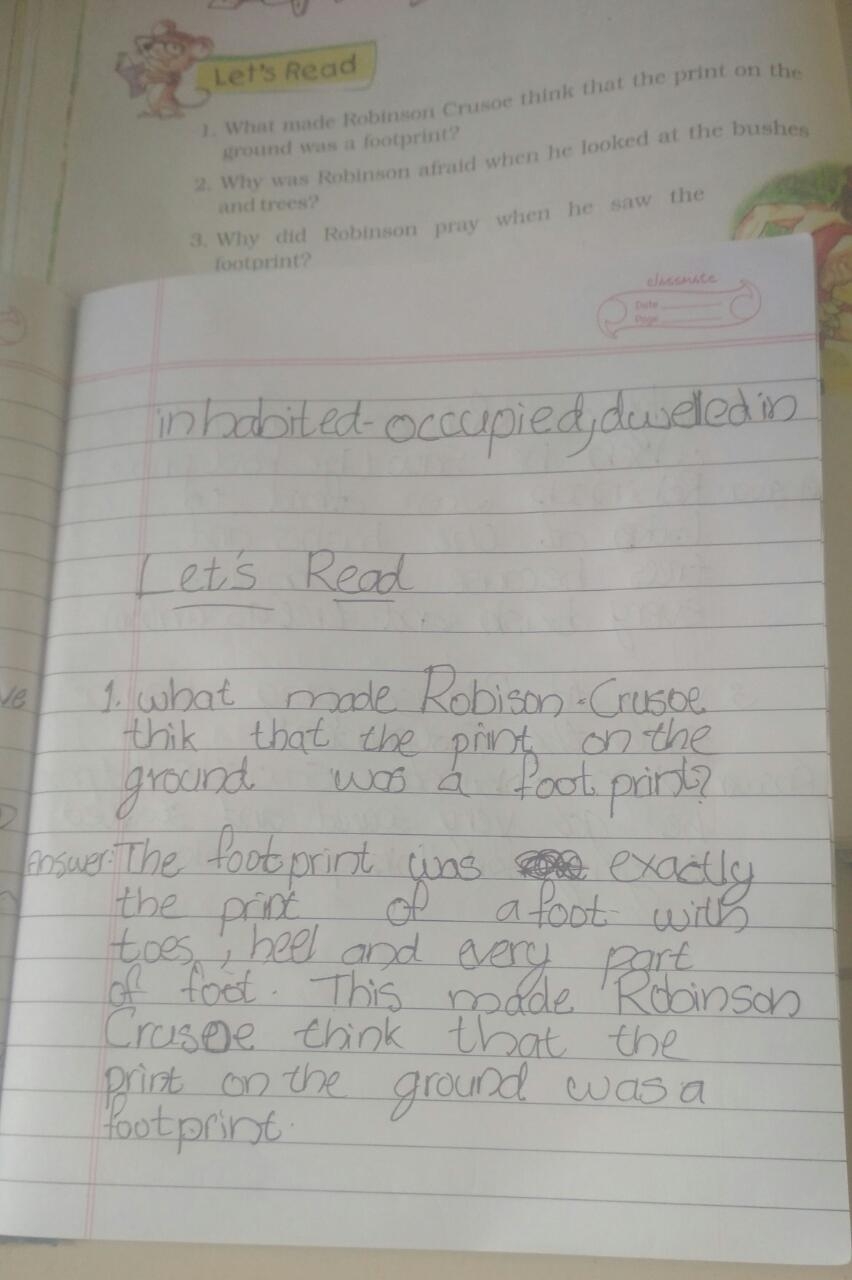 Let's Read
1. What made Robinson Crusoe think that the print on the
ground was a footprint?
2. Why was Robinson afraid when he looked at the bushes
and trees?
3. Why did Robinson pray when he saw the
footprint?
classmate
Date
Page
inhabited-occupied, dweled in
Let's Read
1. what made Robison-Crusoe
thik that the print on the
ground was a foot print?
Answer: The footprint was exactly
the print of a foot with
toes, heel and every part
of foot. This made Robinson
Crusoe think that the
print on the ground was a
footprint.